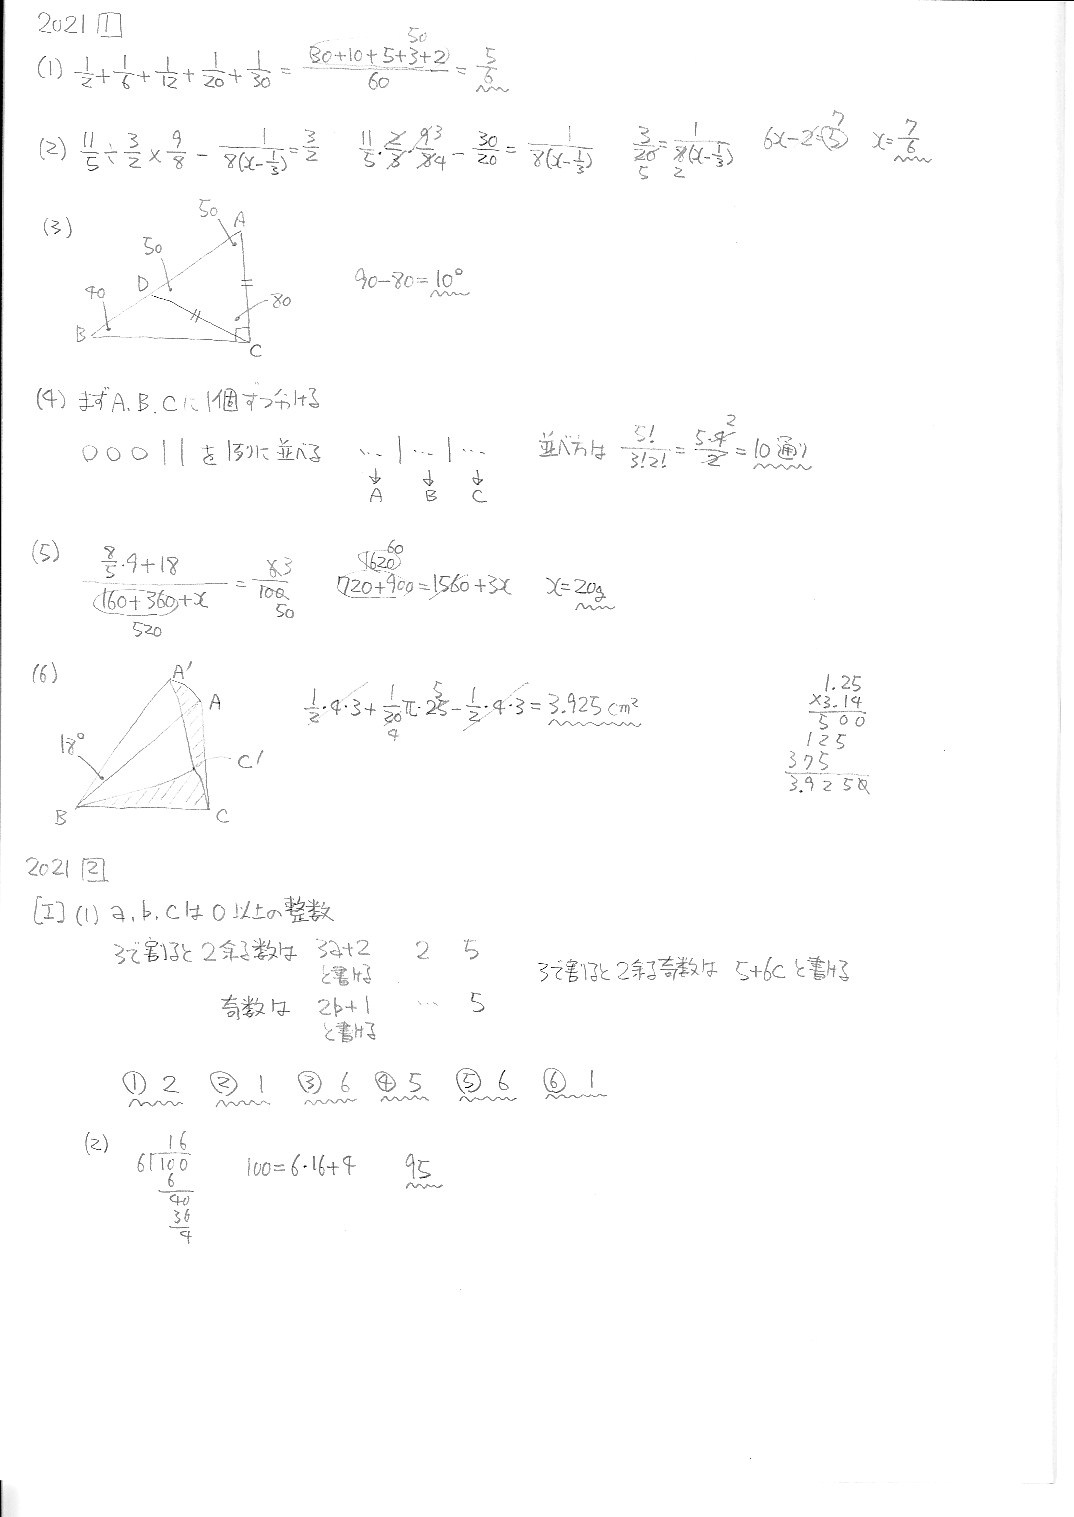 2021 1
(1) 1/2 + 1/6 + 1/12 + 1/20 + 1/30 = (30+10+5+3+2)/60 = 5/6
50
(2) 11/5 ÷ 3/2 × 9/8 - 1/(8(x-1/3)) = 3/2 11/5・2/3・9/8 - 30/20 = 1/(8(x-1/3)) 3/20 = 1/(8(x-1/3)) 6x-2=5 x=7/6
3 4 5 2 7
(3) 50 A
50
D
40
80
B C
90-80=10°
(4) まずA,B,Cに1個ずつ分ける
○○○||を1列に並べる …|…|… 並べ方は 5!/3!2! = 5・4/2 = 10通り
2
A B C
(5) (8/5・9+18)/(160+360+x) = 3/100 720+900=1560+3x x=20g
520 50 1620 60
(6) A'
A
18°
C'
B C
1/2・4・3+1/20π・25-1/2・4・3=3.925cm²
5 4
1.25
×3.14
500
125
375
3.9250
2021 2
[I] (1) a,b,cは0以上の整数
3で割ると2余る数は 3a+2 2 5
と書ける
3で割ると2余る奇数は 5+6cと書ける
奇数は 2b+1 … 5
と書ける
① 2 ② 1 ③ 6 ④ 5 ⑤ 6 ⑥ 1
(2) 16
6)100 100=6・16+4 95
6
40
36
4